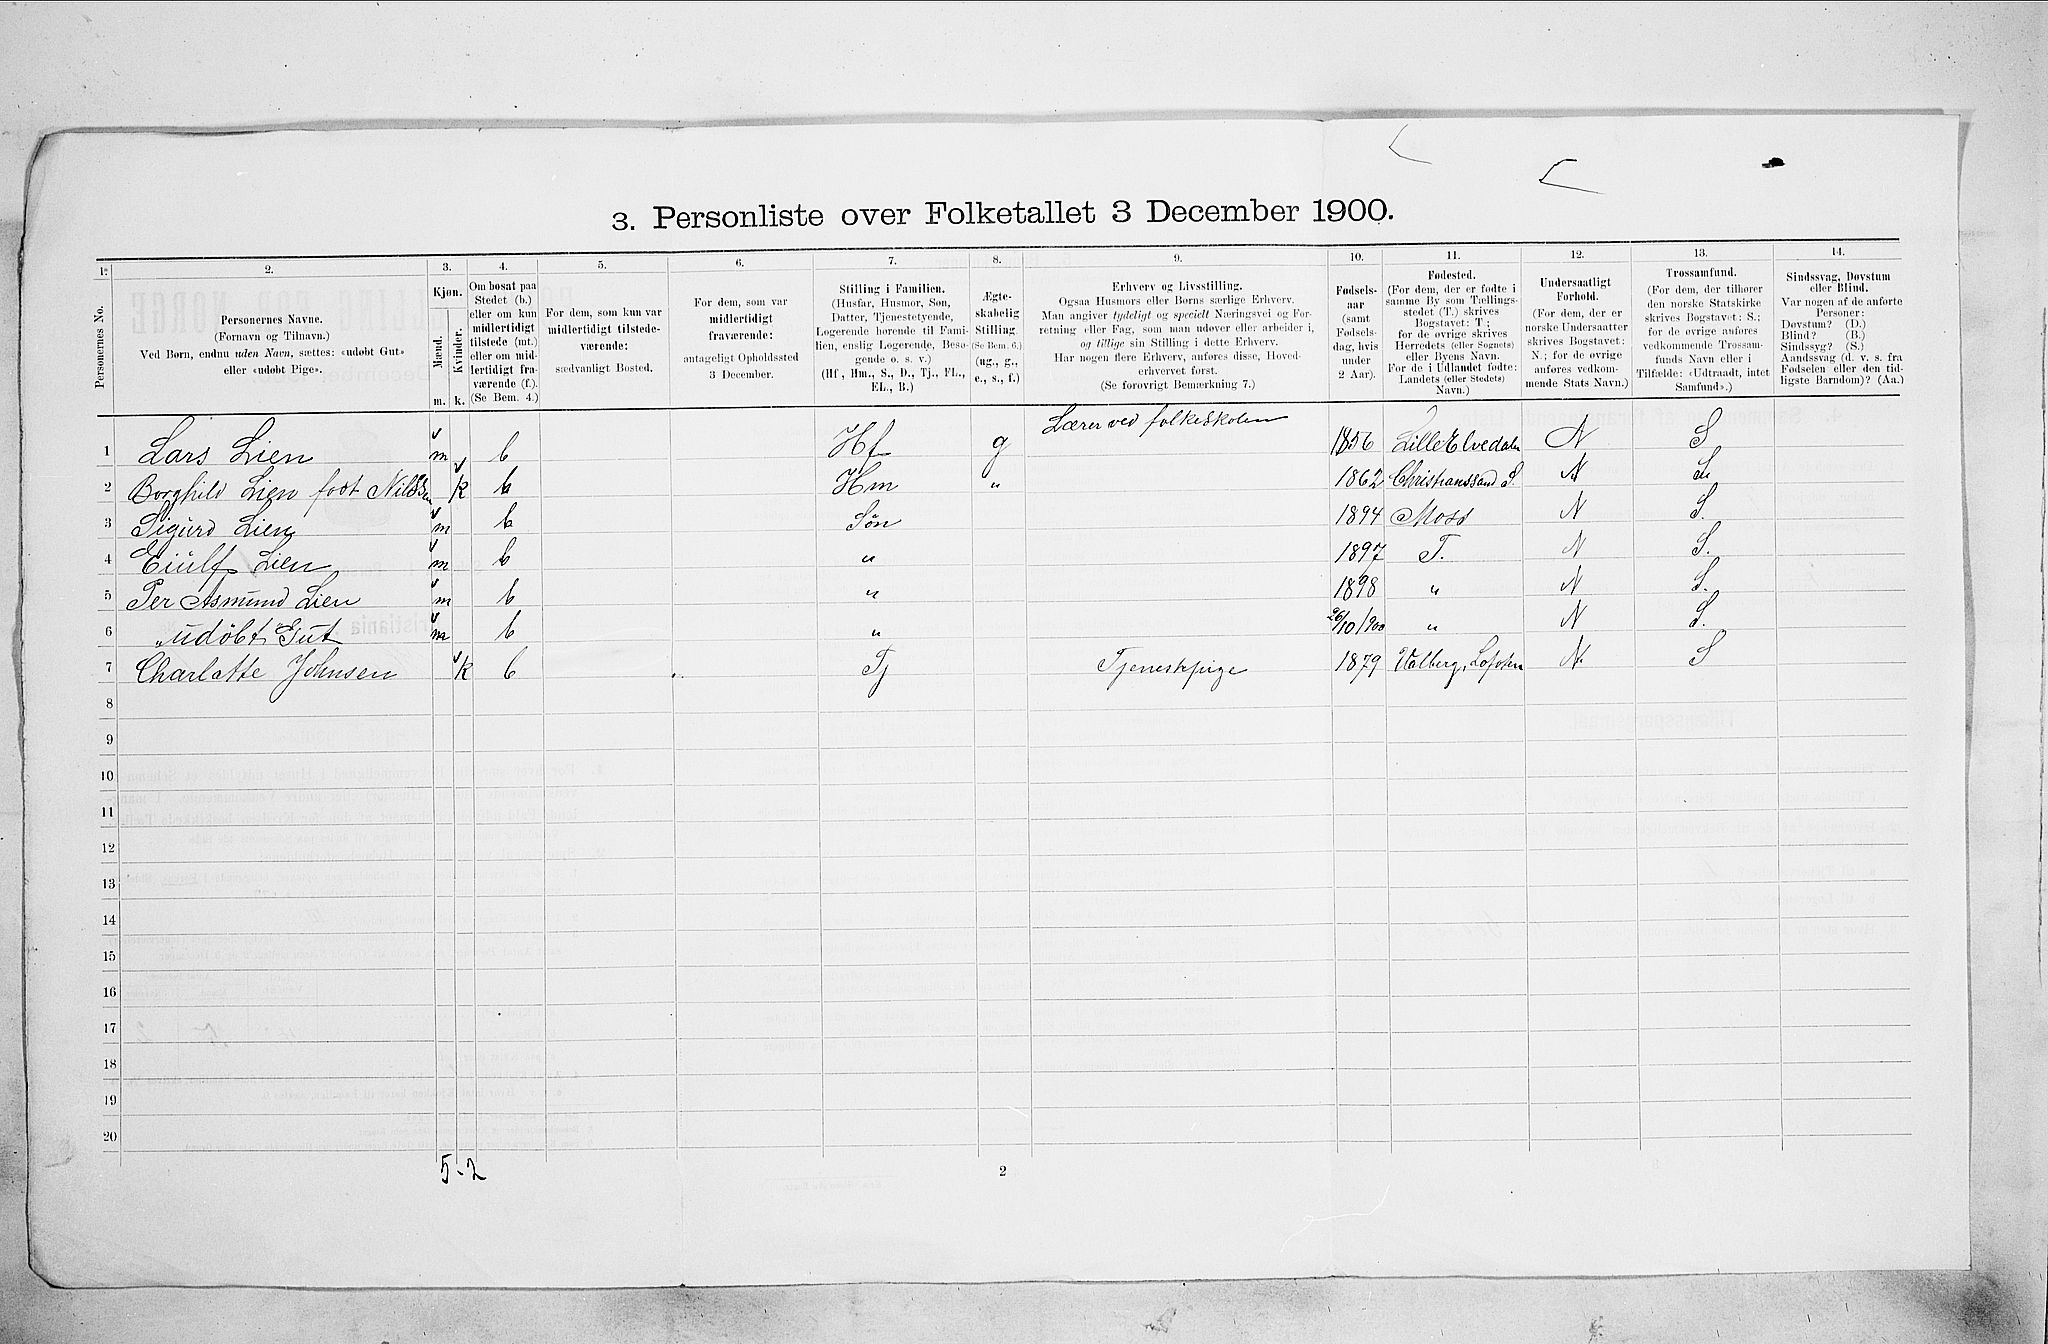 3. Personliste over Folketallet 3 December 1900.
1.
2.
3.
4.
5.
6.
7.
8.
9.
10.
11.
12.
13.
14.
Personernes No.
Personernes Navne.
(Fornavn og Tilnavn.)
Ved Børn, endnu uden Navn, sættes: «udøbt Gut»
eller «udøbt Pige».
Kjøn.
Mænd.
Kvinder.
m.
k.
Om bosat paa
Stedet (b.)
eller om kun
midlertidigt
tilstede (mt.)
eller om mid-
lertidigt fra-
værende (f.).
(Se Bem. 4.)
For dem, som kun var
midlertidigt tilstede-
værende:
sædvanligt Bosted.
For dem, som var
midlertidigt
fraværende:
antageligt Opholdssted
3 December.
Stilling i Familien.
(Husfar, Husmor, Søn,
Datter, Tjenestetyende,
Logerende hørende til Fami-
lien, enslig Logerende, Besø-
gende o. s. v.)
(Hf., Hm., S., D., Tj., FL.,
EL., B.)
Ægte-
skabelig
Stilling.
(Se Bem. 6.)
(ug., g.,
e., s., f.)
Erhverv og Livsstilling.
Ogsaa Husmors eller Børns særlige Erhverv.
Man angiver tydeligt og specielt Næringsvei og For-
retning eller Fag, som man udøver eller arbeider i,
og tillige sin Stilling i dette Erhverv.
Har nogen flere Erhverv, anføres disse, Hoved-
erhvervet først.
(Se forøvrigt Bemærkning 7.)
Fødsels-
aar
(samt
Fødsels-
dag, hvis
under
2 Aar).
Fødested.
(For dem, der er fødte i
samme By som Tællings-
stedet (T.) skrives
Bogstavet: T.;
for de øvrige skrives
Herredets (eller Sognets)
eller Byens Navn.
For de i Udlandet fødte:
Landets (eller Stedets)
Navn.)
Undersaatligt
Forhold.
(For dem, der er
norske Undersaatter
skrives Bogstavet:
N.; for de øvrige
anføres vedkom-
mende Stats Navn.)
Trossamfund.
(For dem, der tilhører
den norske Statskirke
skrives Bogstavet: S.;
for de øvrige anføres
vedkommende Trossam-
funds Navn eller i
Tilfælde: «Udtraadt, intet
Samfund».)
Sindssvag, Døvstum
eller Blind.
Var nogen af de anførte
Personer:
Døvstum? (D.)
Blind? (B.)
Sindssyg? (S.)
Aandssvag (d. v. s. fra
Fødselen eller den tid-
ligste Barndom)? (Aa.)
1 Lars Lien m b Hf g Lærer ved folkeskolen 1856 Lille Elvedalen N S
2 Borghild Lien født Nilssen k b Hm " 1862 Christianssand S. N S.
3 Sigurd Lien m b Søn 1894 Moss N S.
4 Eiulf Lien m b " 1897 T. N S.
5 Per Asmund Lien m b " 1898 " N S.
6 "udøbt" Gut m b " 26/10/900 " N S.
7 Charlotte Johnsen k b Tj Tjenestpige 1879 Valberg, Lofoten N. S
8
9
10
11
12
13
14
15
16
17
18
19
20
5-2
2